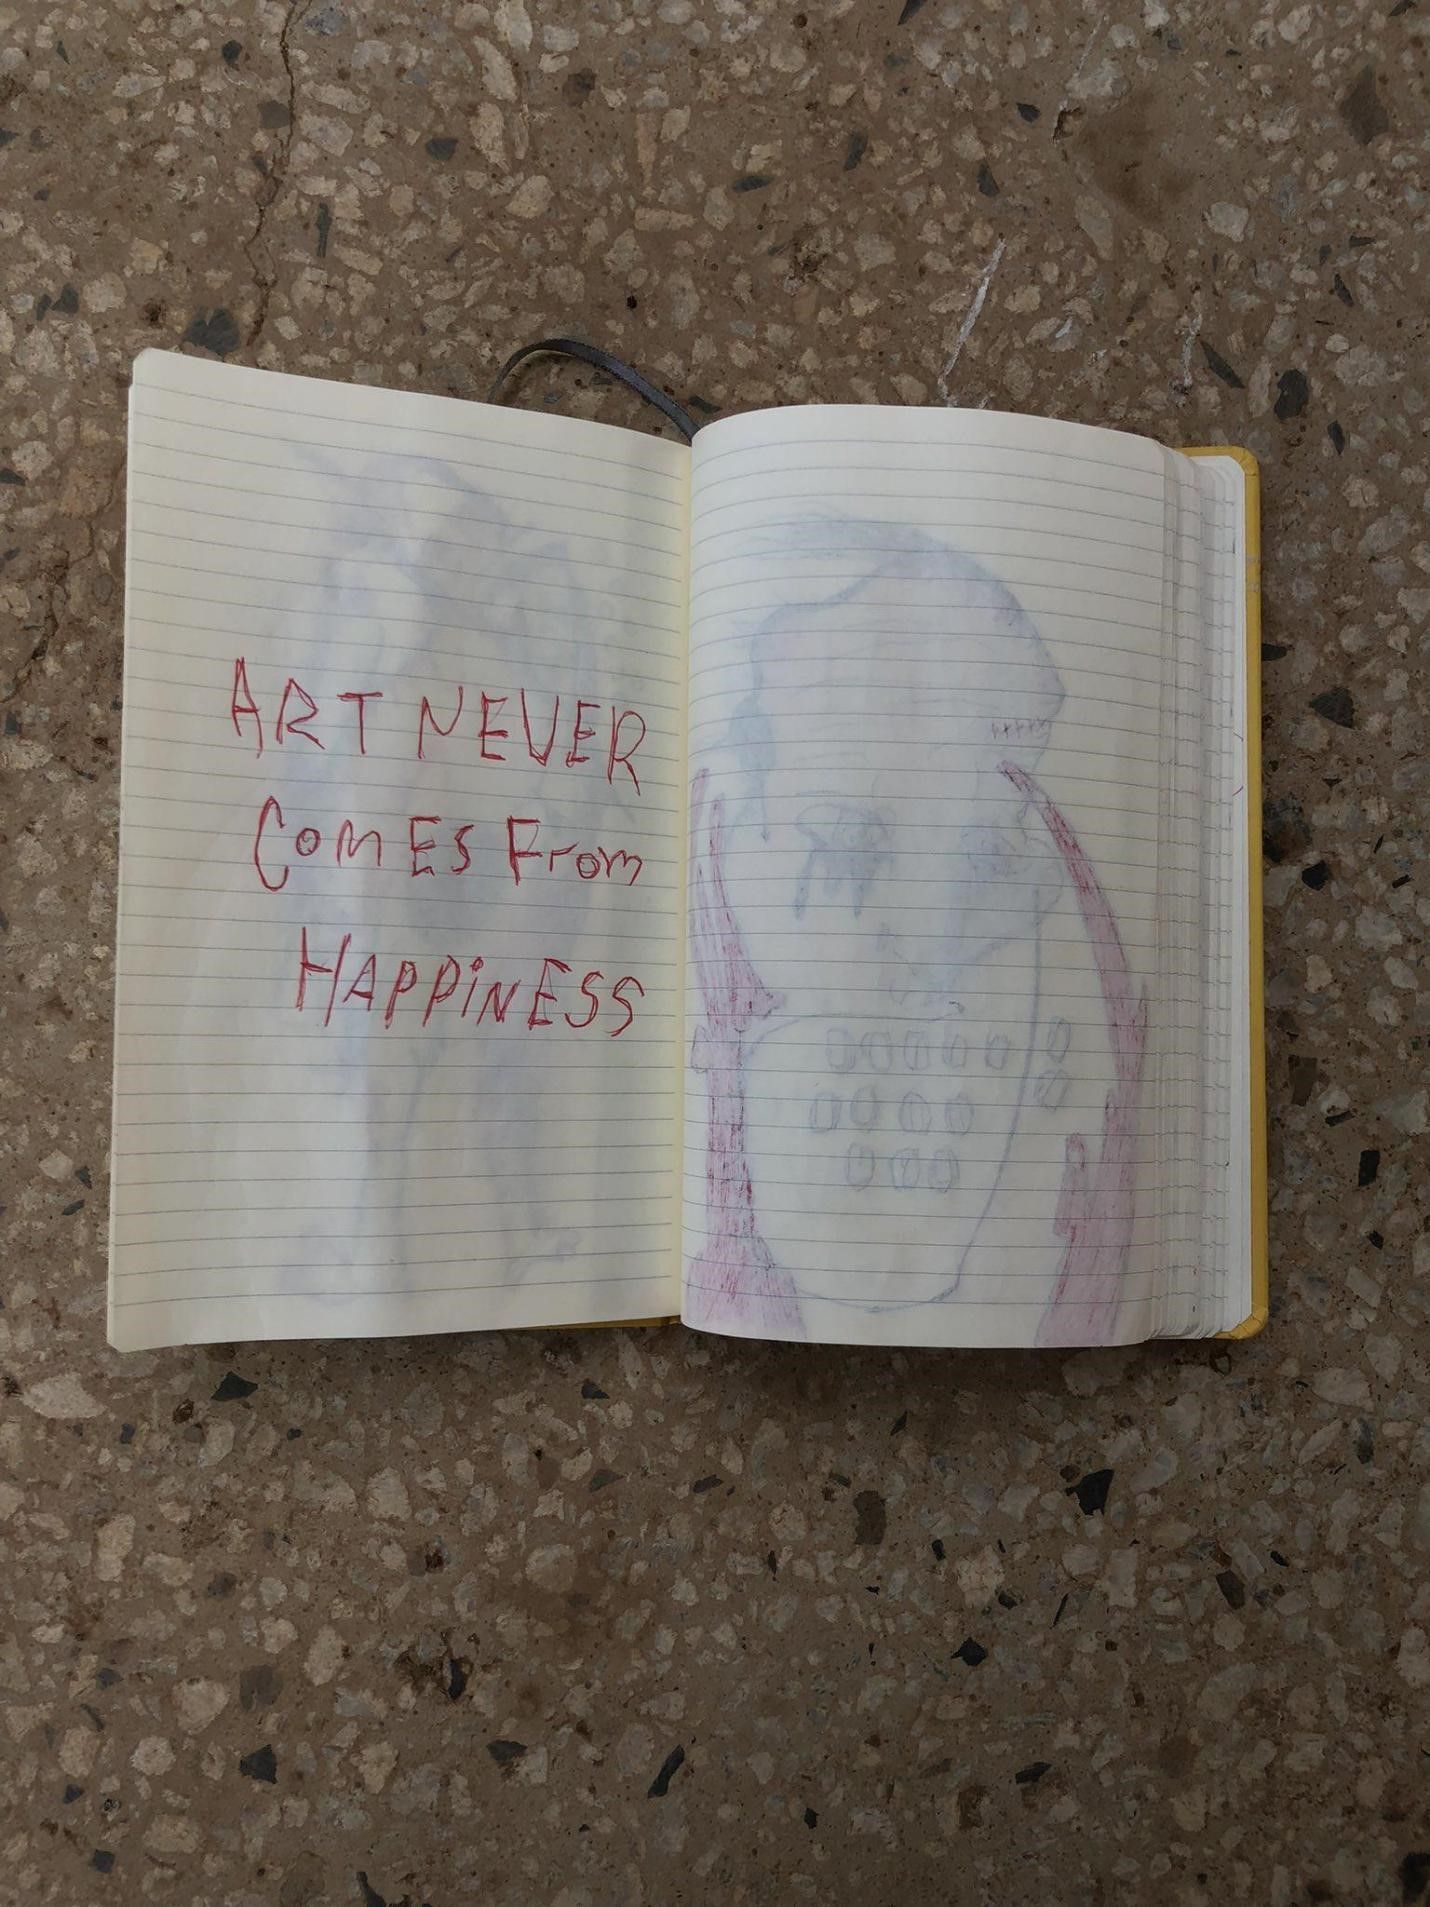 ART NEVER
COMES FROM
HAPPINESS